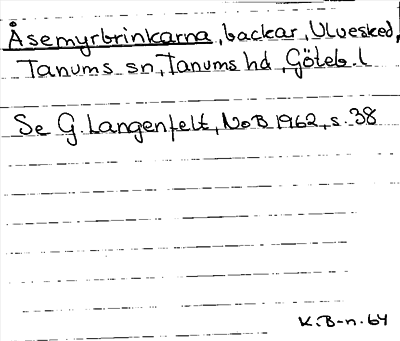 Åsemyrbrinkarna, backar, Ulvesked,
Tanums sn, Tanums hd, Göteb. l
Se G. Langenfelt, NoB 1962, s. 38
K. B-n. 64